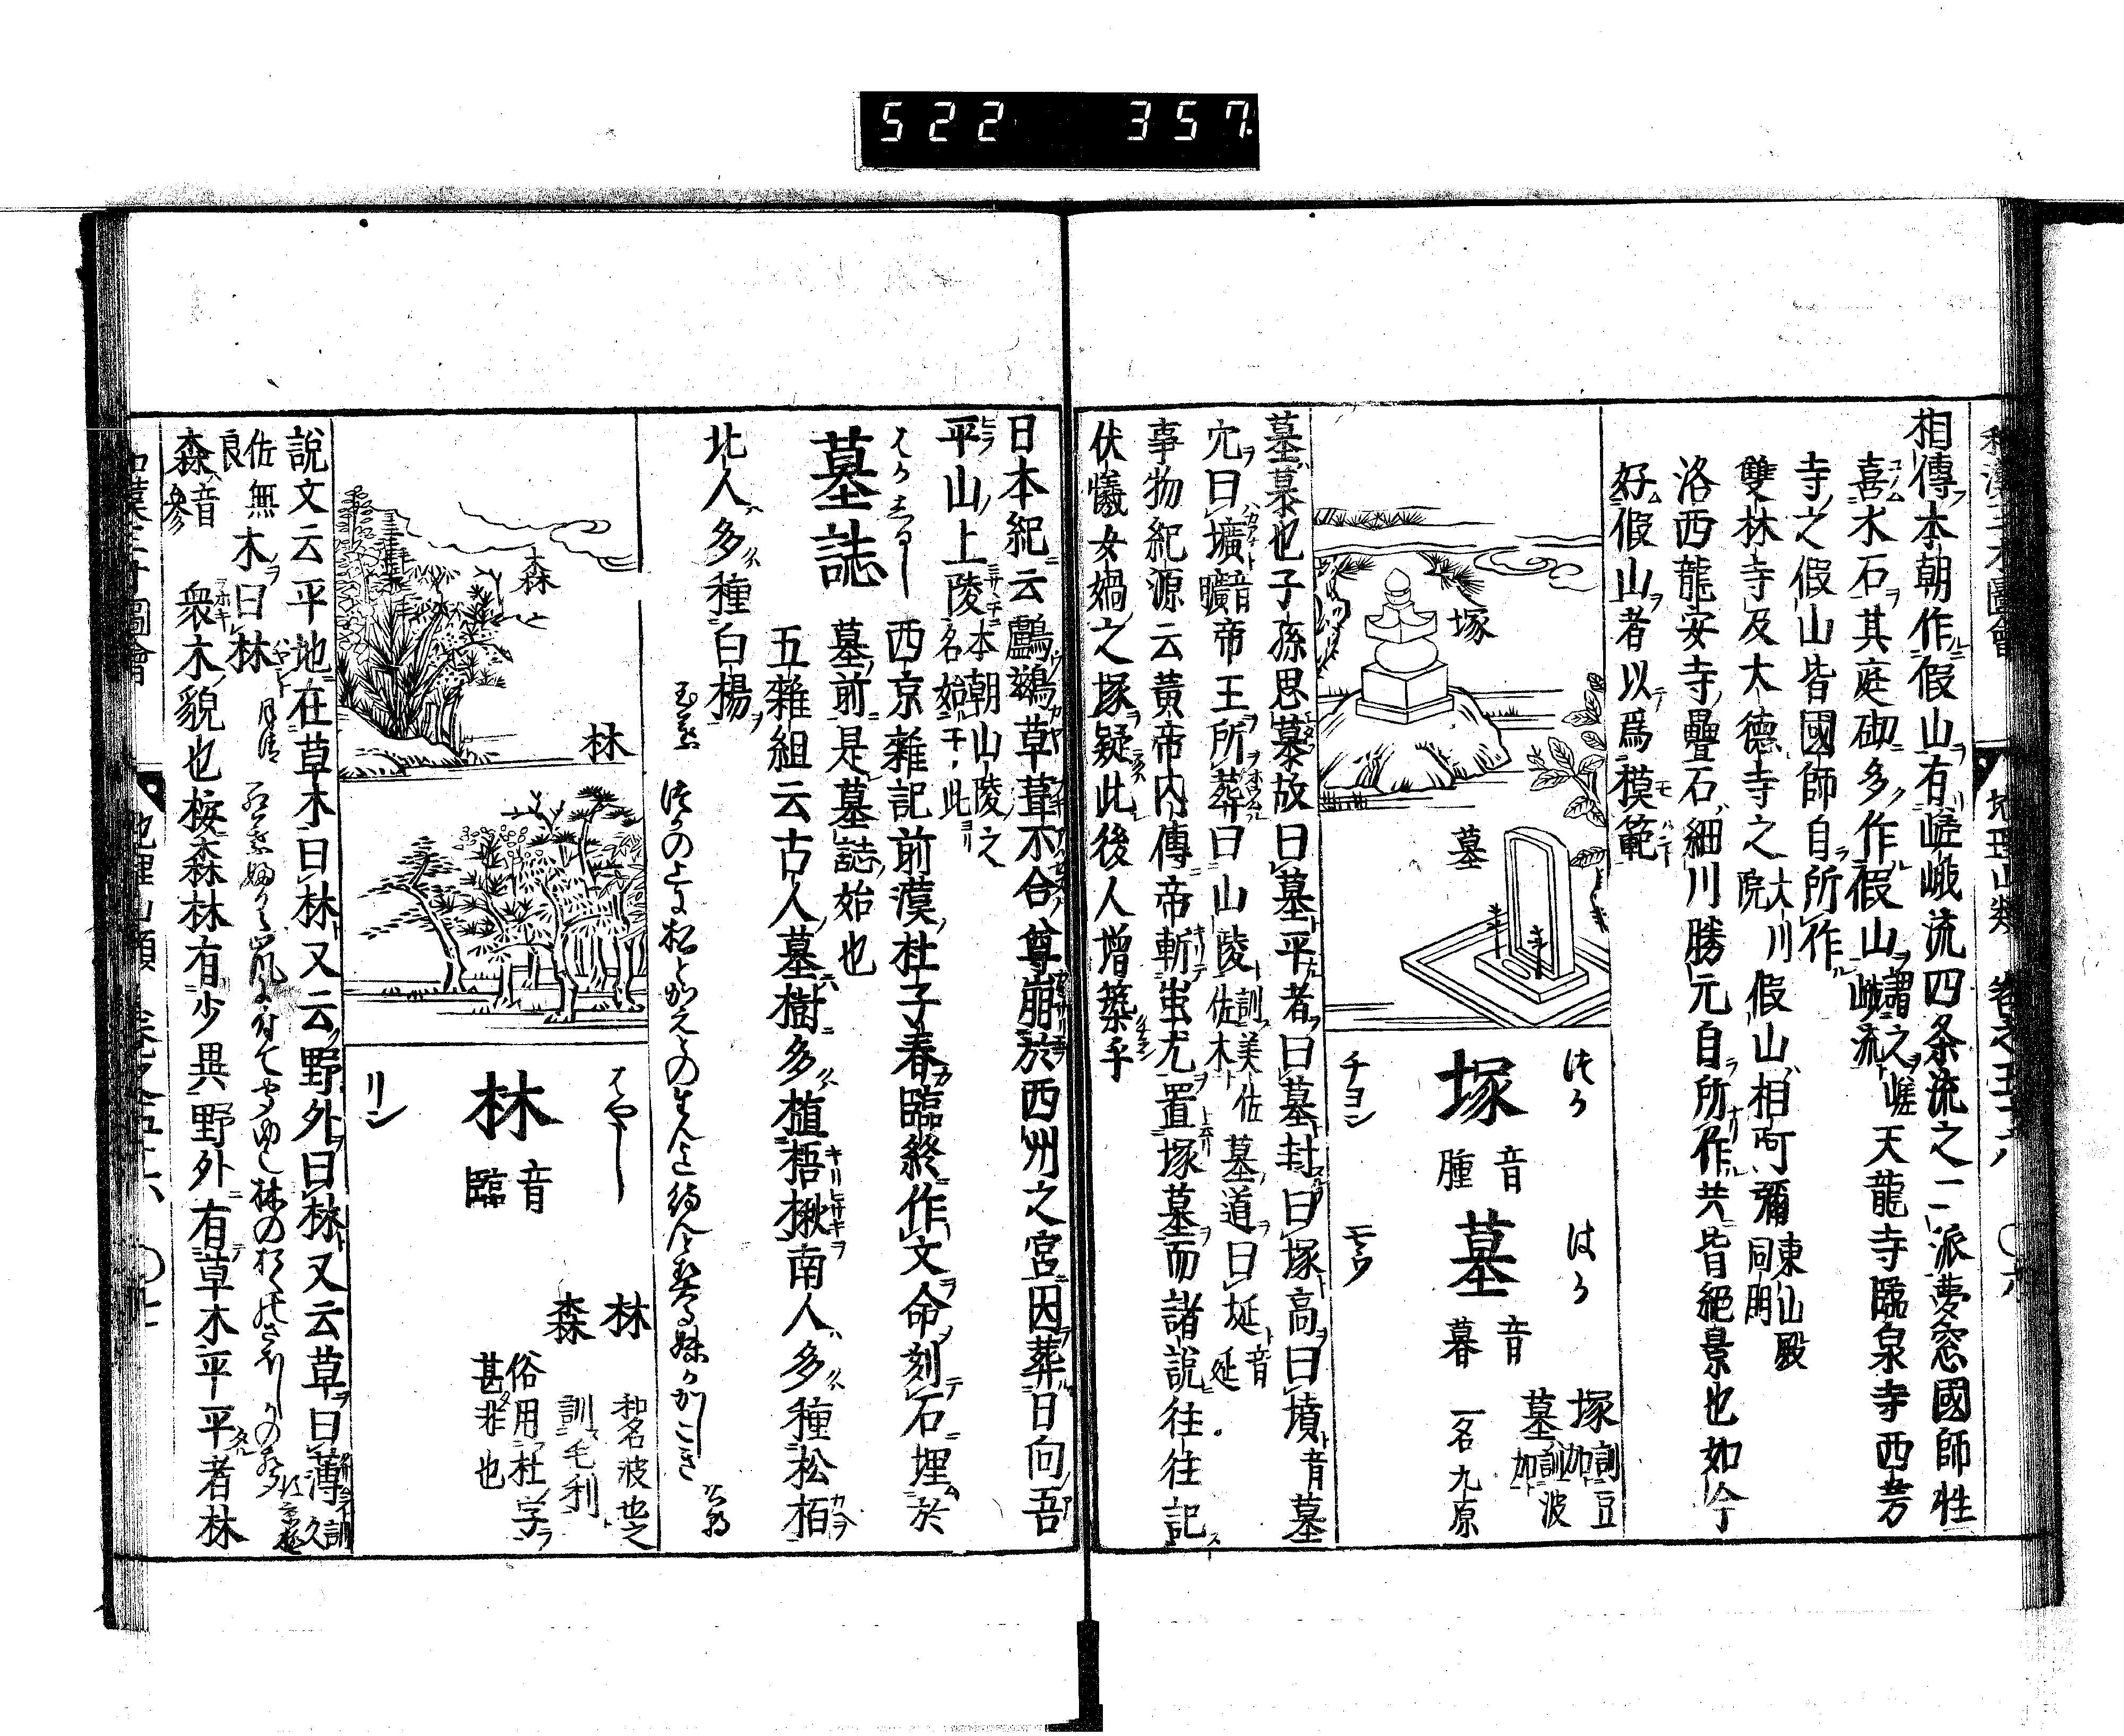 522 357.
相傳本朝作假山有嵯峨流四条流之二派夢窓國師性
喜水石其庭砌多作假山謂之嵯峨流天龍寺臨泉寺西芳
寺之假山皆國師自所作
雙林寺及大德寺之大川院假山相阿彌東山殿同朋
洛西龍安寺疊石細川勝元自所作共皆絕景也如今
好假山者以爲模範
塚
墓
つか
塚 音腫
チヨン
はか
墓 音暮
モウ
塚訓豆加
墓訓波加
一名九原
墓慕也子孫思慕故曰墓平者曰墓封曰塚高曰墳音墓
穴曰壙音曠帝王所葬曰山陵訓美佐佐木墓道曰埏音延
事物紀源云黃帝內傳帝斬蚩尤置塚墓而諸說往往記
伏犧女媧之塚疑此後人增築乎
日本紀云鸕鷀草葺不合尊崩於西州之宮因葬日向吾
平山上陵本朝山陵之名始于此
はかじるし
墓誌
西京雜記前漢杜子春臨終作文命刻石埋於
墓前是墓誌始也
五雜組云古人墓樹多植梧楸南人多種松栢
北人多種白楊
森
林
はやし
林 音臨
リン
林 和名波也之
森 訓毛利
俗用杜字甚非也
說文云平地在草木曰林又云野外曰林又云草曰薄訓久
佐無良木曰林
森音參 衆木貌也按森林有少異野外有草木平平者林